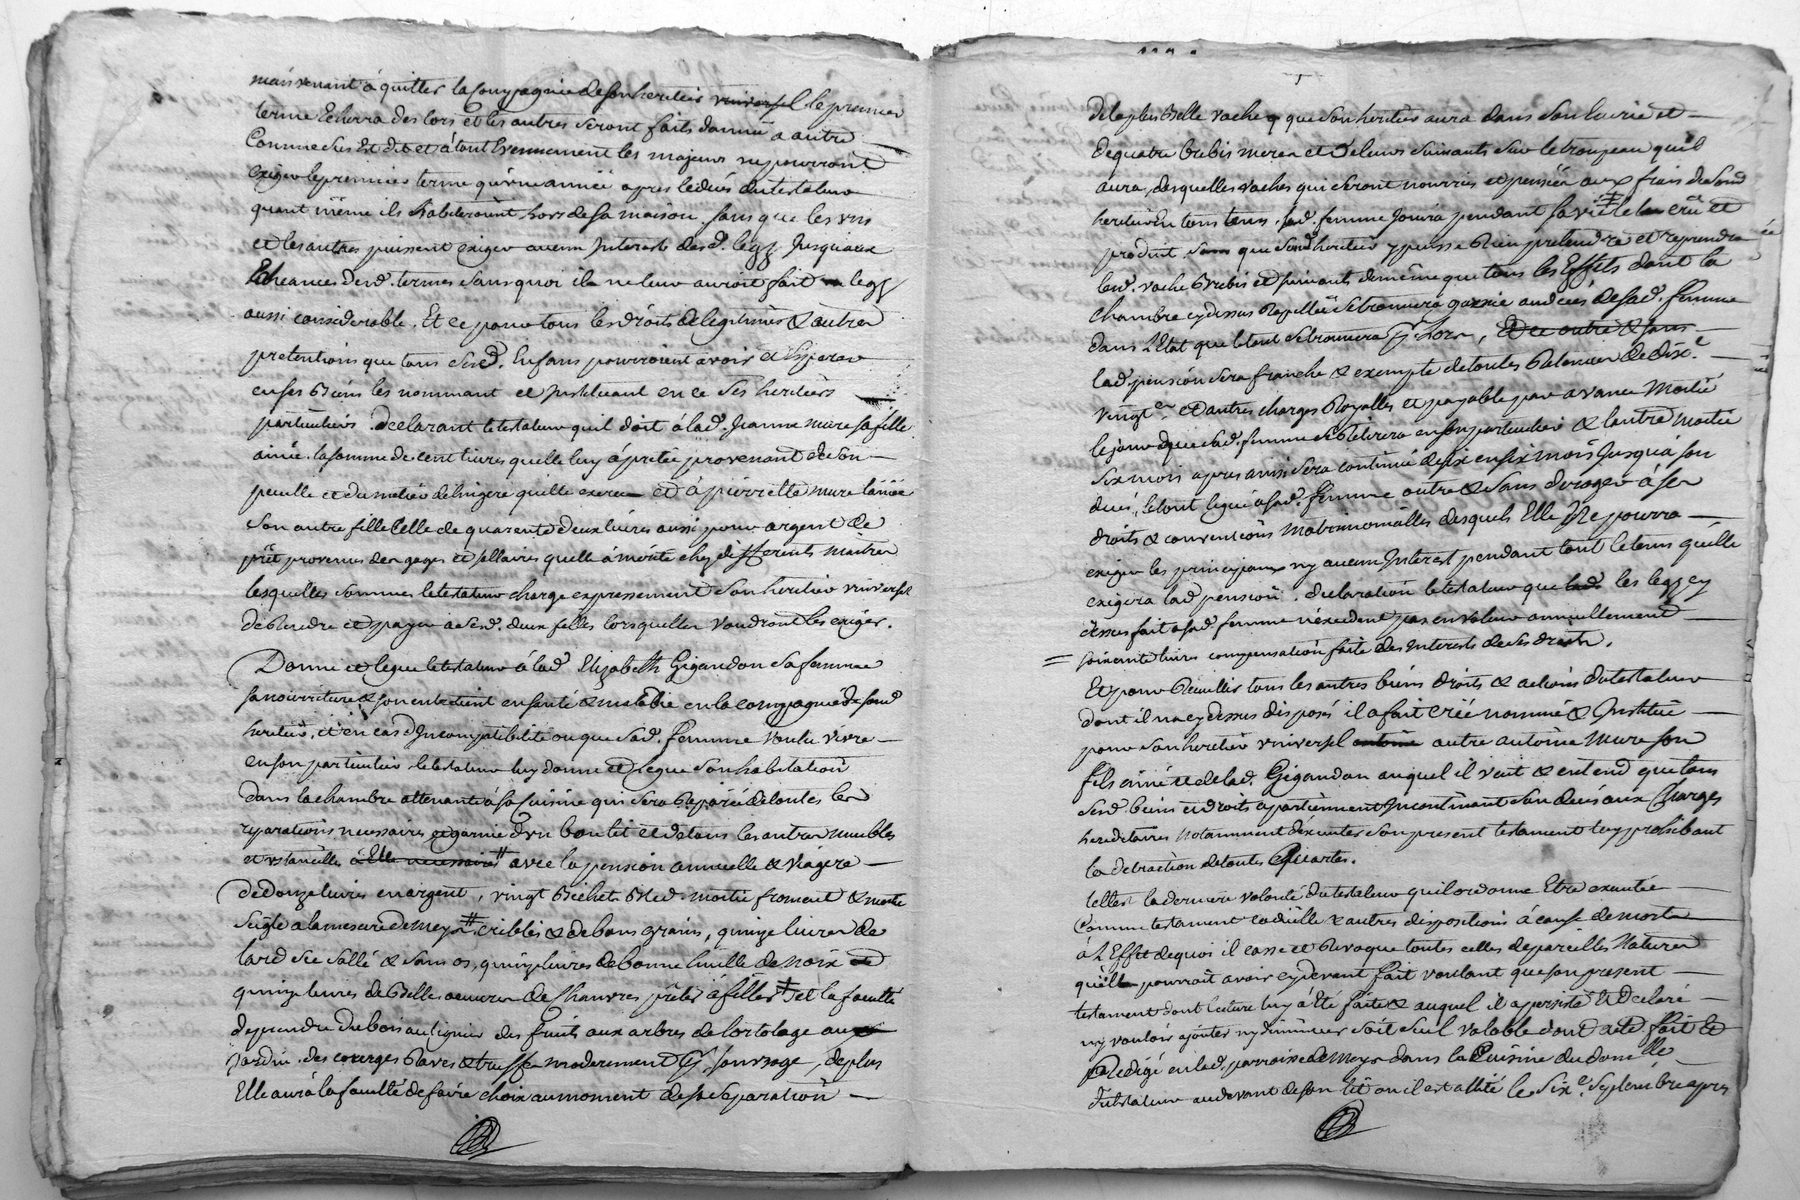 mais venant à quitter la Compagnie de son heritier universel le premier
terme Echerra des lors et les autres seront faits d'année a autre
Comme sus Est dit et à tout Evennement les majeurs ne pourront
exiger le premier terme qu'une année apres le decés du testateur
quant même ils habiteroint hors de sa maison. sans que les uns
et les autres puissent exiger aucun Interests desd. legs Jusqu'aux
Echeances desd. termes sans quoi il ne leur auroit fait legs
aussi considerable. Et ce pour tous les droits de legitimes & autres
pretentions que tous sesd. Enfans pourroient avoir et Esperer
en ses Biens les nommant et Instituant en ce ses heritiers
particuliers. declarant le testateur qu'il doit à lad. Jeanne mure sa fille
ainée. la somme de cent livres qu'elle luy à prêtée provenant de son
pecule et du metier de lingere qu'elle exerce et à pierrette mure
son autre fille Celle de quarente deux livres aussi pour argent de
prêt provenus des gages et sallaires qu'elle à mérité chez differents maitres
lesquelles sommes le testateur charge expressement son heritier universel
de Rendre et payer a sesd. deux filles lorsquelles voudront les exiger.
Donne et legue le testateur à lad. Elizabeth Gigandon sa femme
sa nourriture & son entretient en santé & maladie en la compagnie de sond.
heritier, et en cas d'Incompatibilité ou que sad. femme voulu vivre
en son particulier le testateur luy donne et legue son habitation
dans la chambre attenante à sa Cuisine qui sera Réparée de toutes les
reparations necessaires et garnie d'un bon lit et de tous les autres meubles
et ustancilles à Elle necessaires avec la pension annuelle & viagere
de douze livres en argent, vingt Bichets Bled. moitié froment & moitié
seigle a la mesure de Meys, criblés & de bons grains, quinze livres de
lard sec sallé & sans os, quinze livres de bonne huille de noix et
quinze livres de Belles oeuvres de Chanvres prêtes a filler et la faculté
de prendre du bois au lignier des fruits aux arbres de l'ortolage au
jardin. des courges Raves & truffes moderement pr. son usage, de plus
Elle aura la faculté de faire choix au moment de sa separation
de la plus Belle vache que son heritier aura dans son Ecurie et
de quatre brebis meres et de leurs suivants sur le troupeau qu'il
aura, desquelles vaches qui seront nourries et pensées aux frais de sond.
heritier En tous tems. sad. femme Jouira pendant sa vie le crû et
produit sans que sond. heritier y puisse Rien pretendre et reprendra
lesd. vache Brebis et suivants de même que tous les Effets dont la
chambre cy dessus Rapellée se trouvera garnie au decés de sad. femme
dans L'Etat que le tout se trouvera pr. lors, Et ce outre & sans
lad. pension sera franche & exempte de toutes Retenues de dixe.
vingte. et autres charges Royalles et payable par avance Moitié
le jour que sad. femme se Retirera en son particulier & l'autre moitié
six mois apres ainsi sera continué de six en six mois Jusqu'à son
decés, le tout legué à sad. femme outre & sans deroger à ses
droits & conventions Matrimonialles desquels Elle Ne pourra
exiger les principaux ny aucun Interest pendant tout le tems qu'elle
exigera lad. pension. declaration le testateur que les legs cy
dessus fait a sad. femme n'excedent pas en valeur annuellement
= soixante livres compensation faite des Interests de ses droits.
Et pour Recuillir tous les autres biens droits & actions du testateur
dont il n'a cy dessus disposés il a fait créé nommé & Institué
pour son heritier universel autre antoine Mure son
fils ainé et de lad. Gigandon auquel il veut & entend que tous
sesd. biens et droits apartiennent Incontinant son decés aux Charges
hereditaires Notamment d'executer son present testament luy prohibant
la detraction de toutes Quartes.
telle est la derniere volonté du testateur qu'il ordonne Etre executée
Comme testament codicille & autres dispositions à cause de mort
à L'Effet de quoi il casse et Revoque toutes celles de pareilles Natures
qu'elle pourroit avoir cy devant fait voulant que son present
testament dont lecture luy à Eté faite & auquel il a persisté Et declaré
n'y vouloir ajouter ny diminuer soit seul valable dont acte. fait Et
Redigé en lad. parroisse de Meys dans la Cuisine du domicille
du testateur au devant de son lit ou il est allité le sixe. septembre apres